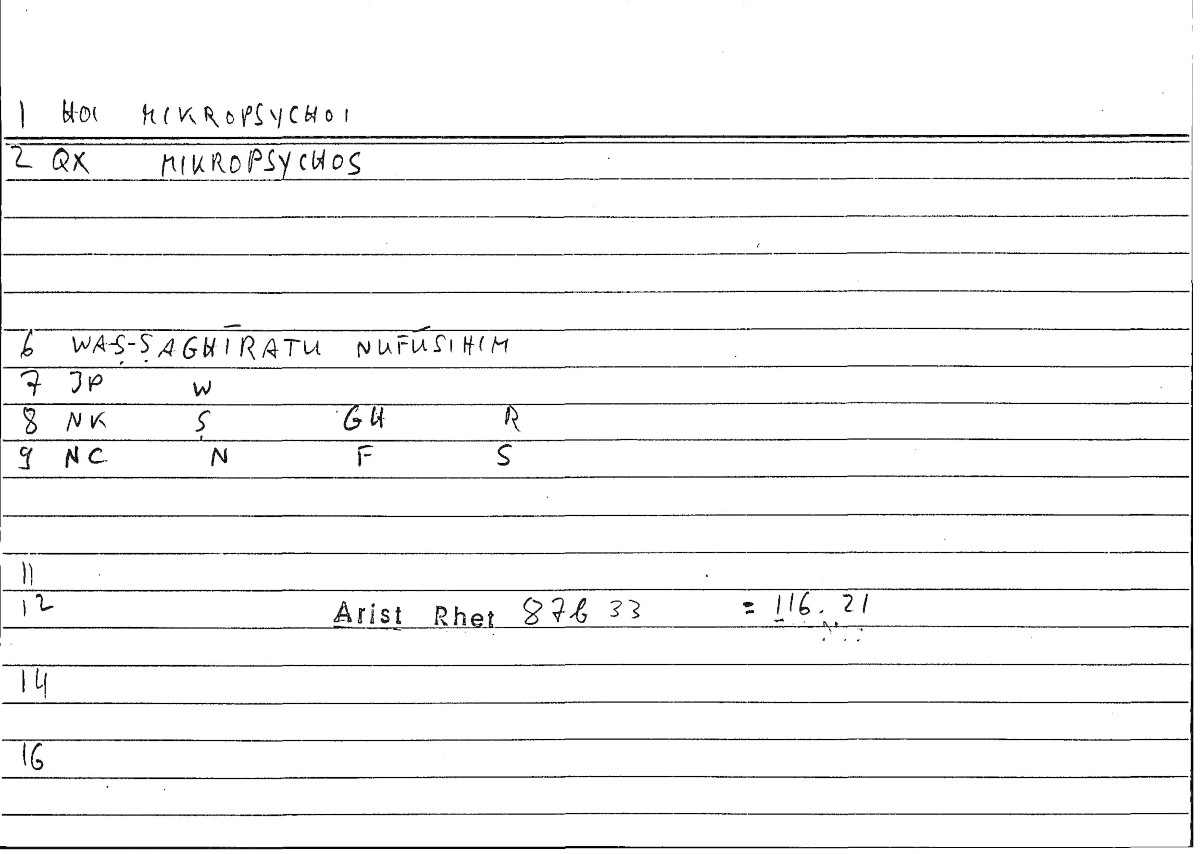 1 HOI MIKROPSYCHOI
2 QX MIKROPSYCHOS
6 WAṢ-ṢAGHĪRATU NUFŪSIHIM
7 JP W
8 NK Ṣ GH R
9 NC N F S
11
12 Arist Rhet 87b 33 = 116.21
14
16